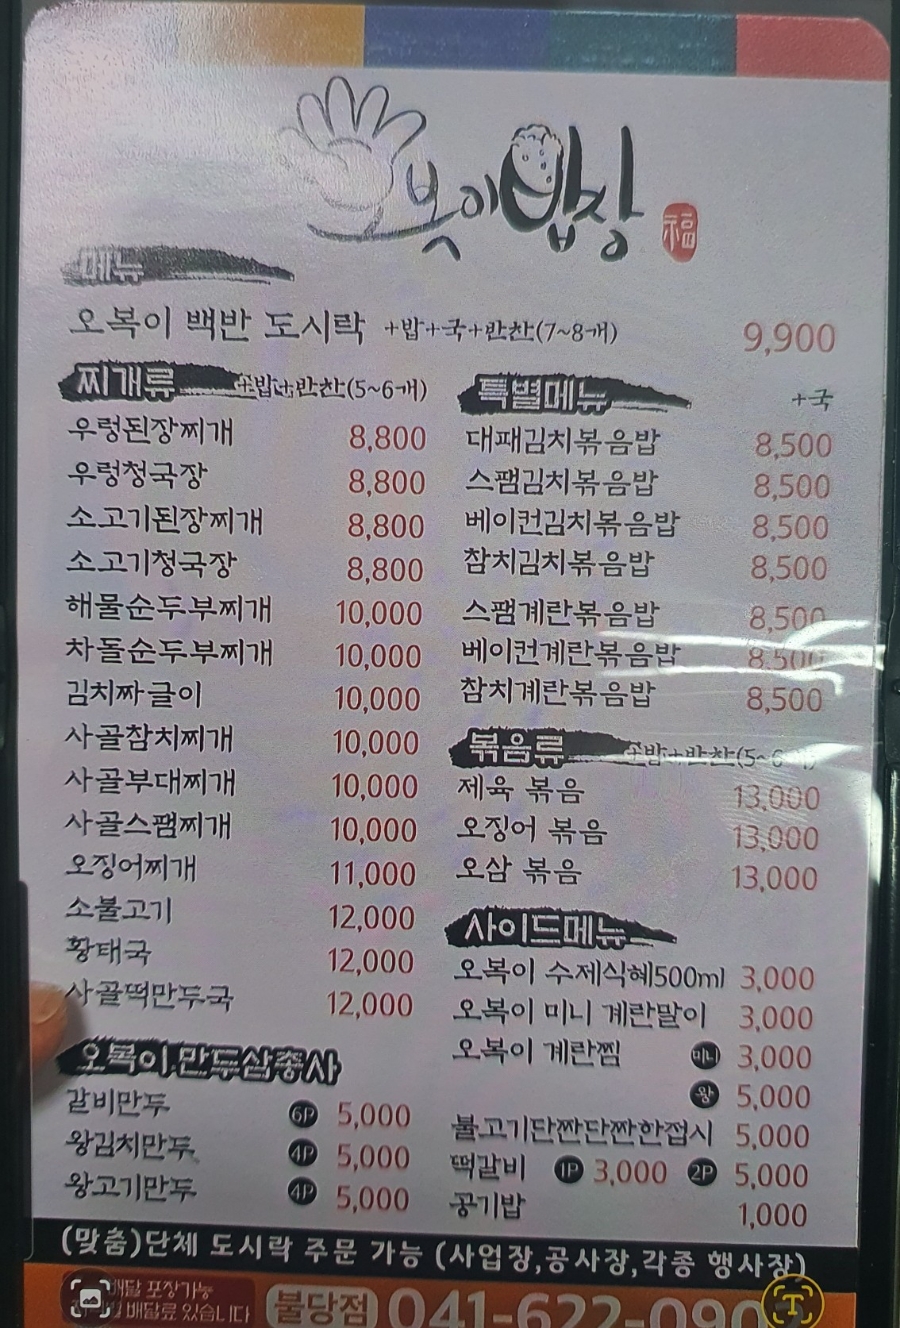 오복이밥장
福
메뉴
오복이 백반 도시락 +밥+국+반찬(7~8개) 9,900
찌개류 +밥+반찬(5~6개)
우렁된장찌개 8,800
우렁청국장 8,800
소고기된장찌개 8,800
소고기청국장 8,800
해물순두부찌개 10,000
차돌순두부찌개 10,000
김치짜글이 10,000
사골참치찌개 10,000
사골부대찌개 10,000
사골스팸찌개 10,000
오징어찌개 11,000
소불고기 12,000
황태국 12,000
사골떡만두국 12,000
오복이 만두삼총사
갈비만두 6P 5,000
왕김치만두 4P 5,000
왕고기만두 4P 5,000
특별메뉴 +국
대패김치볶음밥 8,500
스팸김치볶음밥 8,500
베이컨김치볶음밥 8,500
참치김치볶음밥 8,500
스팸계란볶음밥 8,500
베이컨계란볶음밥 8,500
참치계란볶음밥 8,500
볶음류 +밥+반찬(5~6개)
제육 볶음 13,000
오징어 볶음 13,000
오삼 볶음 13,000
사이드메뉴
오복이 수제식혜500ml 3,000
오복이 미니 계란말이 3,000
오복이 계란찜 미니 3,000
왕 5,000
불고기단짠단짠한접시 5,000
떡갈비 1P 3,000 2P 5,000
공기밥 1,000
(맞춤)단체 도시락 주문 가능 (사업장,공사장,각종 행사장)
배달 포장가능
배달료 있습니다
불당점 041-622-090